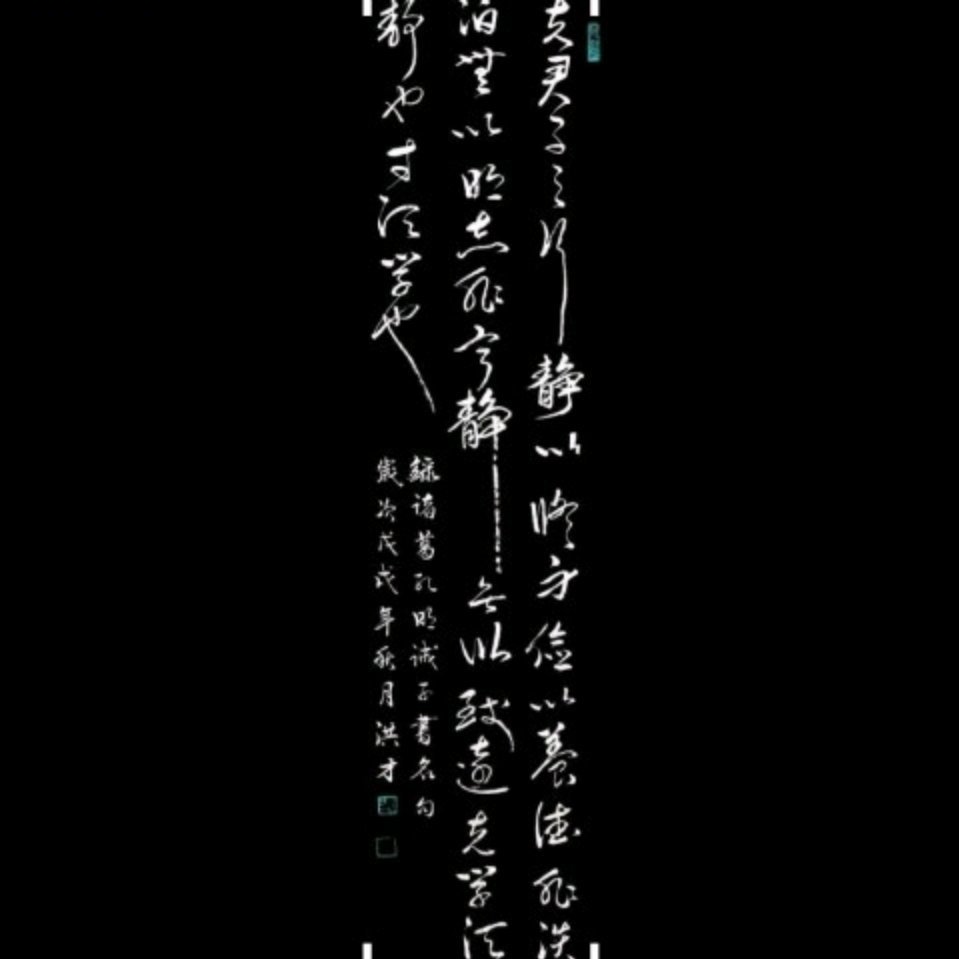 夫君子之行静以修身儉以養德非淡
泊無以明志非宁静无以致遠夫学须
静也才须学也
録诸葛孔明诫子書名句
歲次戊戌年秋月洪才